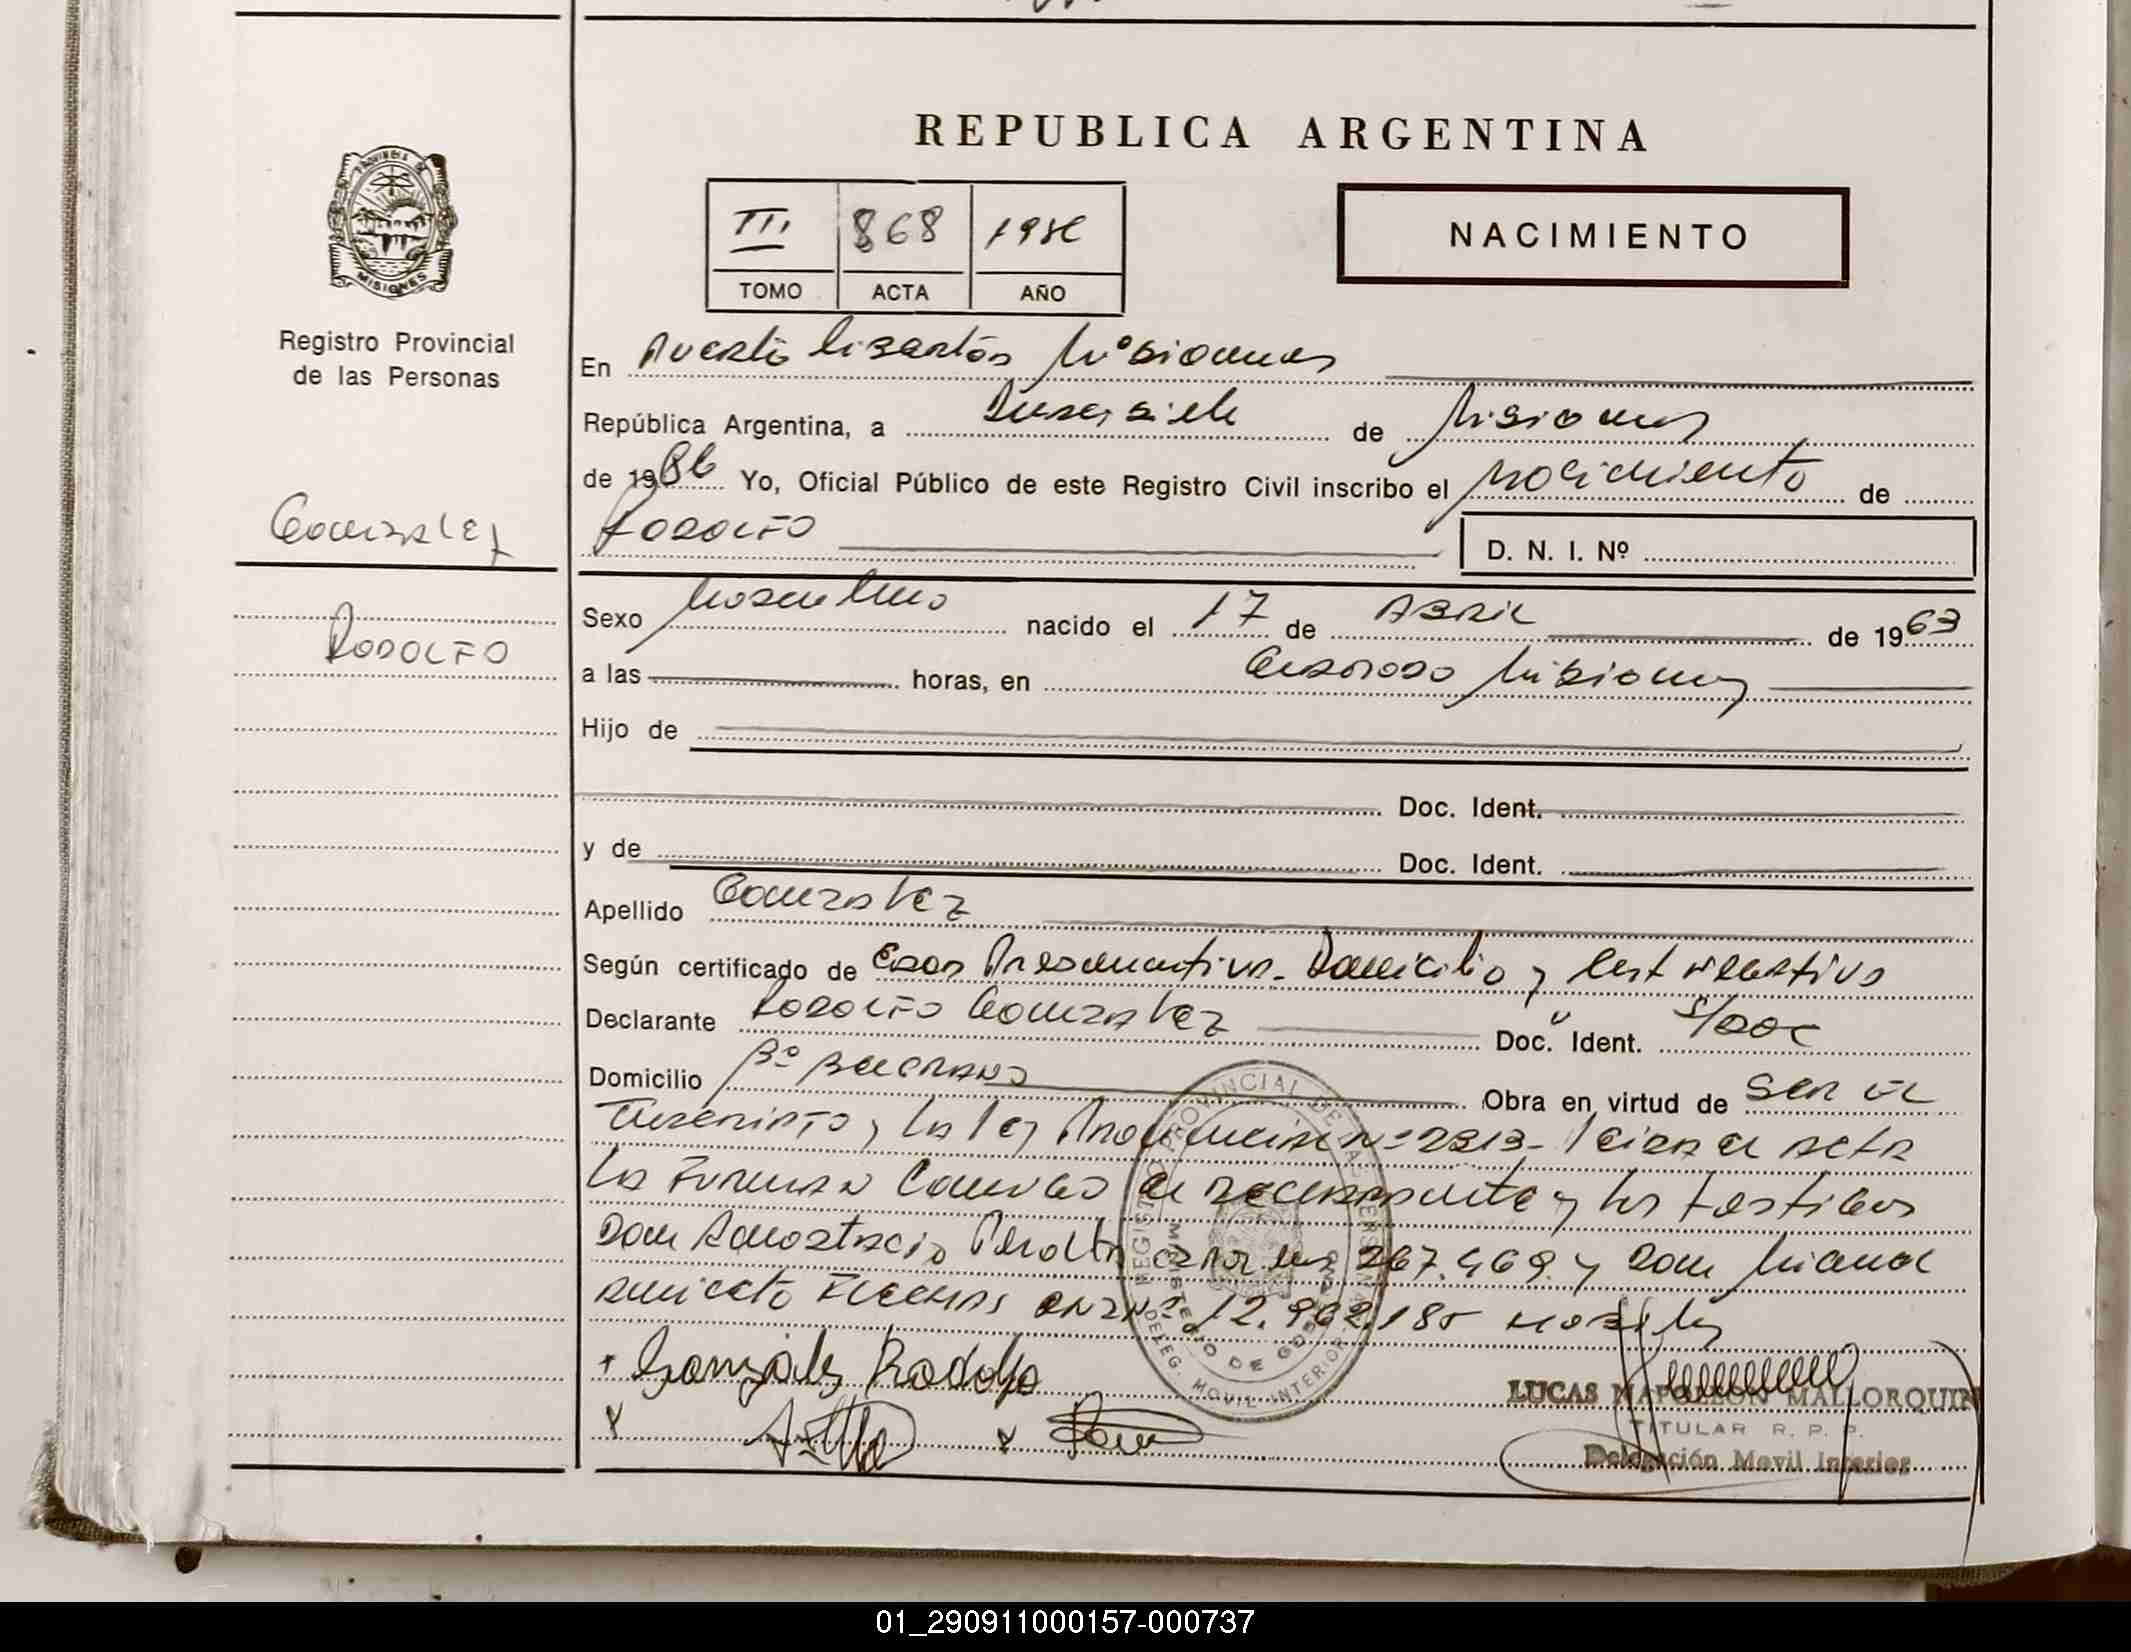 REPUBLICA ARGENTINA
PROVINCIA DE
MISIONES
III 868 1986
TOMO ACTA AÑO
NACIMIENTO
Registro Provincial
de las Personas
En Puerto Libertad Misiones
República Argentina, a Dieciseis de
de 1986 Yo, Oficial Público de este Registro Civil inscribo el nacimiento de
Gonzalez
RODOLFO
D. N. I. Nº
RODOLFO
Sexo Masculino nacido el 17 de ABRIL de 1963
a las horas, en Misiones
Hijo de
Doc. Ident.
y de Doc. Ident.
Apellido Gonzalez
Según certificado de Edad Presumativa. Domicilio y Cert negativo
Declarante RODOLFO Gonzalez Doc. Ident. S/DOC
Domicilio Bº BELGRANO Obra en virtud de SER EL
Inscripto y la ley Provincial Nº 2313- leida el ACTA
La Firman Conmigo el y los testigos
Don Anastacio Peralta 267.469 y Don
12.902.185
Gonzalez Rodolfo
REGISTRO PROVINCIAL DE LAS PERSONAS
MINISTERIO DE GOBIERNO
DELEG. MOVIL INTERIOR
LUCAS NAPOLEON MALLORQUIN
TITULAR R. P. P.
Delegación Movil Interior
01_290911000157-000737